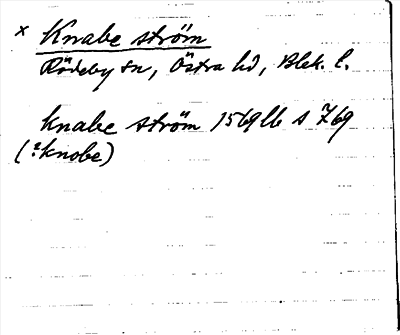 x Knabe ström
Rödeby sn, Östra hd, Blek. l.
Knabe ström 1569 lb s 769
(?: Knobe)